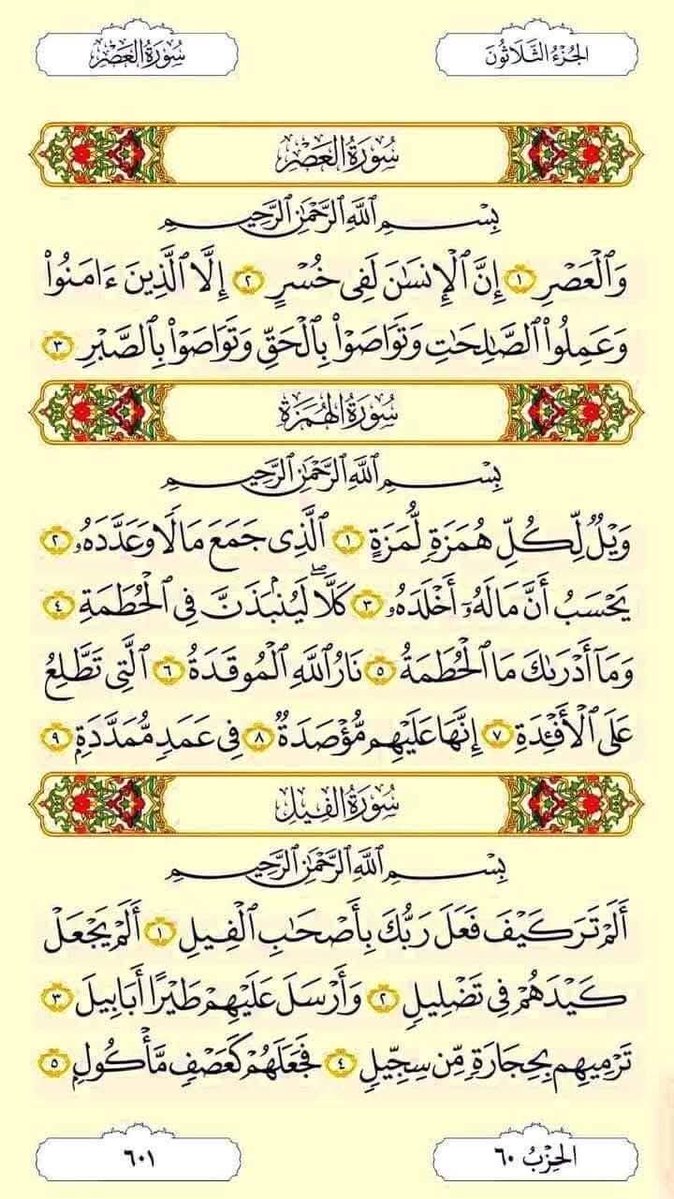 الجُزْءُ الثَّلَاثُونَ
سُورَةُ العَصْرِ
سُورَةُ العَصْرِ
بِسْمِ ٱللَّهِ ٱلرَّحْمَٰنِ ٱلرَّحِيمِ
وَٱلْعَصْرِ ١ إِنَّ ٱلْإِنسَٰنَ لَفِى خُسْرٍ ٢ إِلَّا ٱلَّذِينَ ءَامَنُوا۟
وَعَمِلُوا۟ ٱلصَّٰلِحَٰتِ وَتَوَاصَوْا۟ بِٱلْحَقِّ وَتَوَاصَوْا۟ بِٱلصَّبْرِ ٣
سُورَةُ الهُمَزَةِ
بِسْمِ ٱللَّهِ ٱلرَّحْمَٰنِ ٱلرَّحِيمِ
وَيْلٌ لِّكُلِّ هُمَزَةٍ لُّمَزَةٍ ١ ٱلَّذِى جَمَعَ مَالًا وَعَدَّدَهُۥ ٢
يَحْسَبُ أَنَّ مَالَهُۥٓ أَخْلَدَهُۥ ٣ كَلَّا ۖ لَيُنۢبَذَنَّ فِى ٱلْحُطَمَةِ ٤
وَمَآ أَدْرَىٰكَ مَا ٱلْحُطَمَةُ ٥ نَارُ ٱللَّهِ ٱلْمُوقَدَةُ ٦ ٱلَّتِى تَطَّلِعُ
عَلَى ٱلْأَفْـِٔدَةِ ٧ إِنَّهَا عَلَيْهِم مُّؤْصَدَةٌ ٨ فِى عَمَدٍ مُّمَدَّدَةٍۭ ٩
سُورَةُ الفِيلِ
بِسْمِ ٱللَّهِ ٱلرَّحْمَٰنِ ٱلرَّحِيمِ
أَلَمْ تَرَ كَيْفَ فَعَلَ رَبُّكَ بِأَصْحَٰبِ ٱلْفِيلِ ١ أَلَمْ يَجْعَلْ
كَيْدَهُمْ فِى تَضْلِيلٍ ٢ وَأَرْسَلَ عَلَيْهِمْ طَيْرًا أَبَابِيلَ ٣
تَرْمِيهِم بِحِجَارَةٍ مِّن سِجِّيلٍ ٤ فَجَعَلَهُمْ كَعَصْفٍ مَّأْكُولٍۭ ٥
الحِزْبُ ٦٠
٦٠١